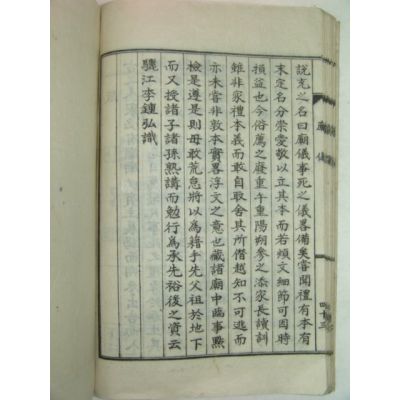 說克之名曰廟儀事死之儀畧備矣嘗聞禮有本有
末定名分崇愛敬以立其本而若煩文細節可因時
損益也今俗薦之廢重午重陽朔參之添家長讀訓
雖非家禮本義而敢自取舍其所僭越知不可逃而
亦未嘗非敦本實畧浮文之意也藏諸廟中臨事點
檢是遵是則毋敢荒怠將以爲籍手先父祖於地下
而又授諸子諸孫熟講而勉行爲承先裕後之資云
驪江李鍾弘識
廟儀
四十三